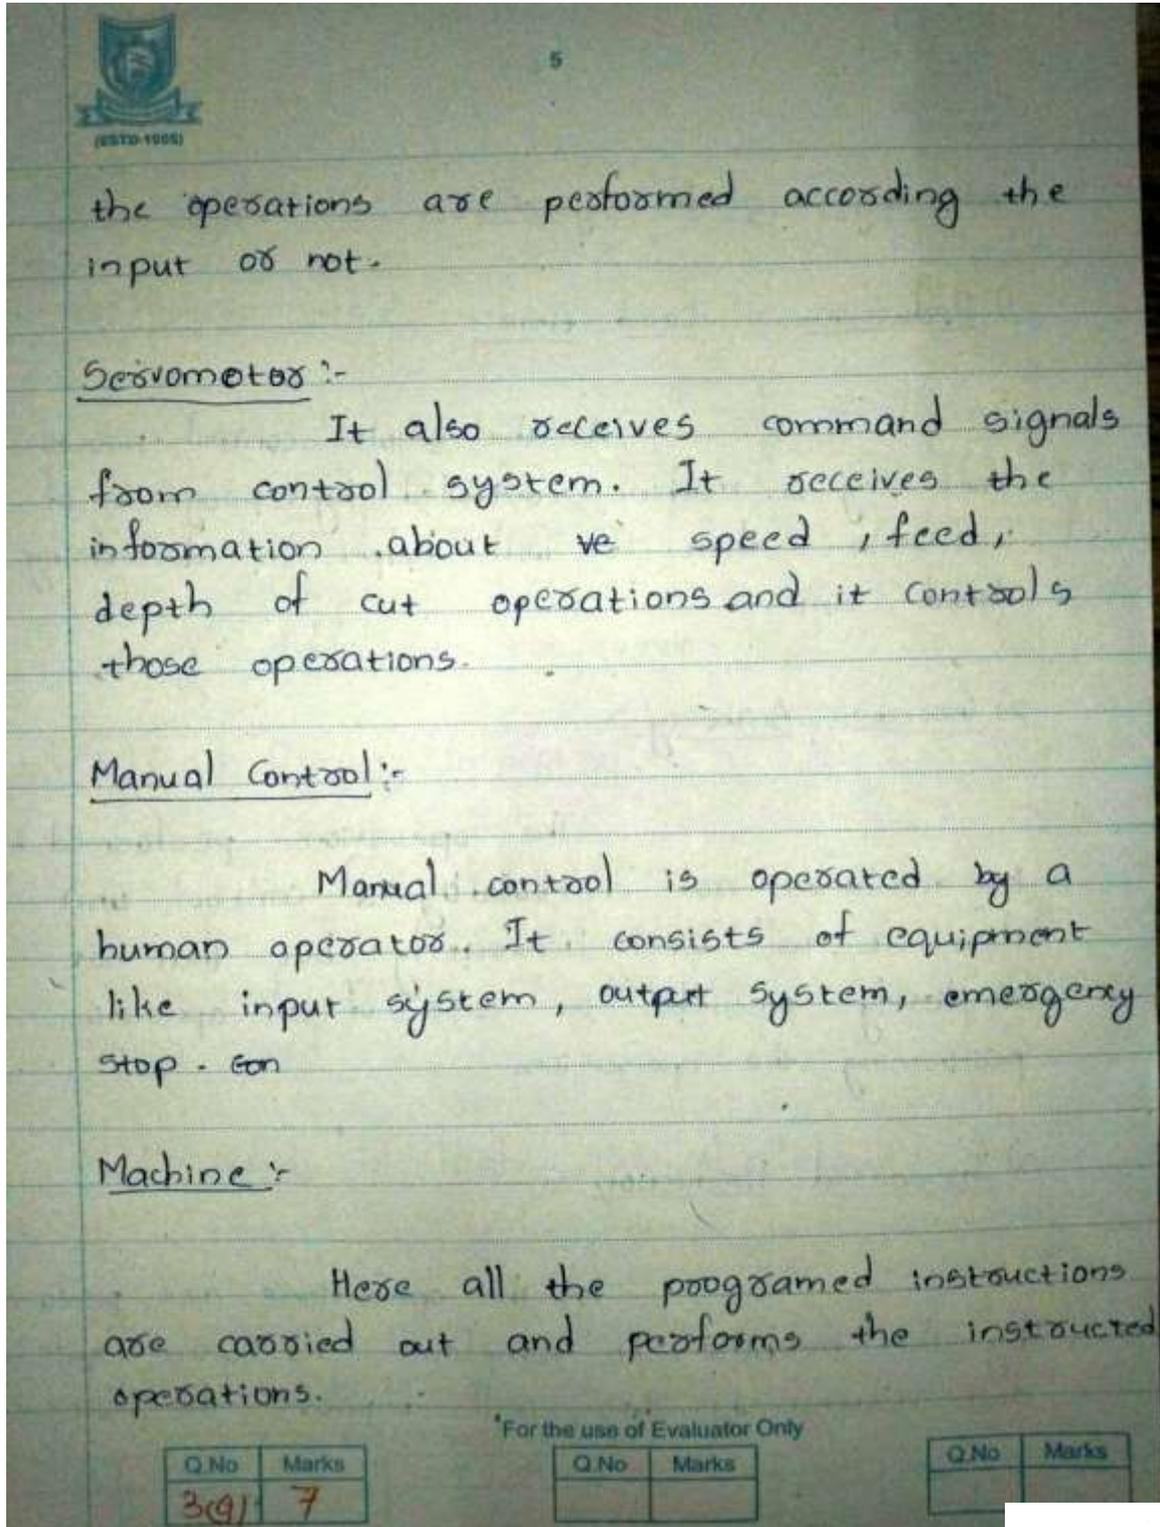 5
(ESTD-1995)
the operations are performed according the
input or not.
Servomotor :-
It also receives command signals
from control system. It receives the
information about ve speed, feed,
depth of cut operations and it controls
those operations.
Manual Control :-
Manual control is operated by a
human operator. It consists of equipment
like input system, output system, emergency
stop. Con
Machine :-
Here all the programed instructions
are carried out and performs the instructed
operations.
*For the use of Evaluator Only
Q.No Marks Q.No Marks Q.No Marks
3(a) 7